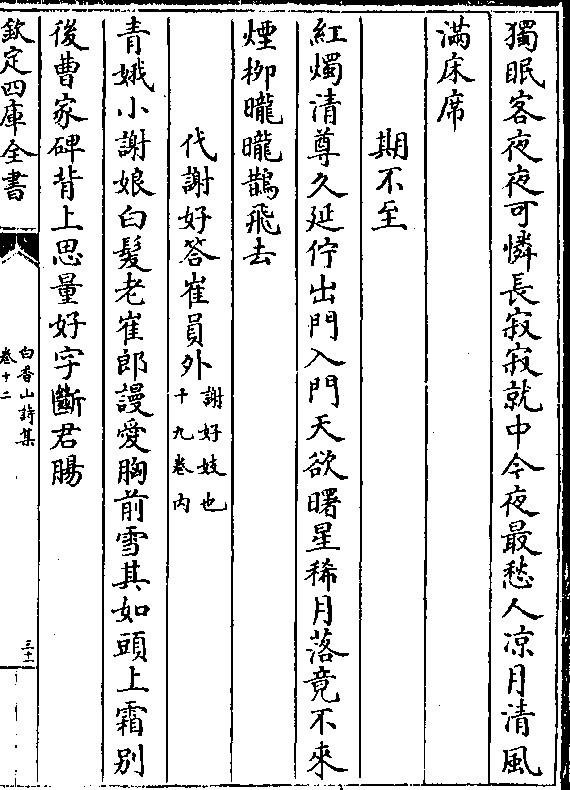 獨眠客夜夜可憐長寂寂就中今夜最愁人凉月清風
滿床席
期不至
紅燭清尊久延佇出門入門天欲曙星稀月落竟不來
煙柳曨曨鵲飛去
代謝好答崔員外謝好妓也
十九卷内
青娥小謝娘白髮老崔郎謾愛胸前雪其如頭上霜别
後曹家碑背上思量好字斷君腸
欽定四庫全書
白香山詩集
卷十二
三十